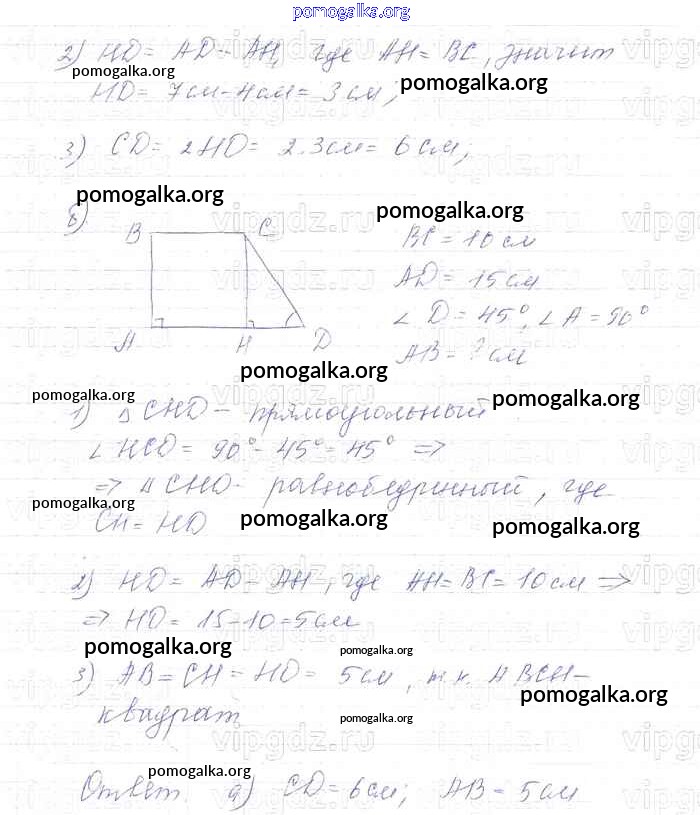 pomogalka.org
2) HD = AD – AH, где AH = BC, значит
pomogalka.org
HD = 7см – 4см = 3см;
pomogalka.org
3) CD = 2HD = 2·3см = 6см;
pomogalka.org
pomogalka.org
б)
B C
BC = 10 см
AD = 15 см
∠D = 45°, ∠A = 90°
A H D
AB = ? см
pomogalka.org
pomogalka.org
pomogalka.org
1) △CHD – прямоугольный
∠HCD = 90° – 45° = 45° ⇒
⇒ △CHD – равнобедренный, где
pomogalka.org
CH = HD
pomogalka.org
pomogalka.org
2) HD = AD – AH, где AH = BC = 10 см ⇒
⇒ HD = 15 – 10 = 5см
pomogalka.org
pomogalka.org
3) AB = CH = HD = 5см, т.к. ABCH –
pomogalka.org
квадрат
pomogalka.org
pomogalka.org
Ответ а) CD = 6см; AB = 5см
vipgdz.ru